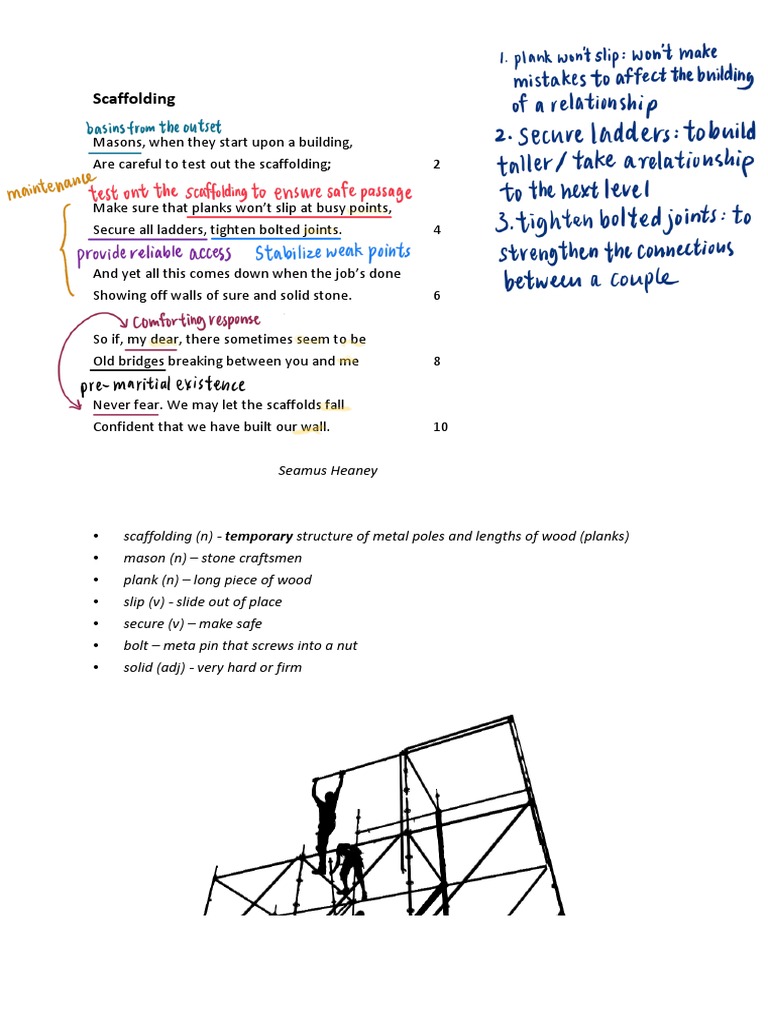 Scaffolding
basins from the outset
Masons, when they start upon a building,
Are careful to test out the scaffolding; 2
maintenance
test out the scaffolding to ensure safe passage
Make sure that planks won't slip at busy points,
Secure all ladders, tighten bolted joints. 4
provide reliable access Stabilize weak points
And yet all this comes down when the job's done
Showing off walls of sure and solid stone. 6
Comforting response
So if, my dear, there sometimes seem to be
Old bridges breaking between you and me 8
pre-maritial existence
Never fear. We may let the scaffolds fall
Confident that we have built our wall. 10
Seamus Heaney
1. plank won't slip: won't make
mistakes to affect the building
of a relationship
2. Secure ladders: to build
taller/ take a relationship
to the next level
3. tighten bolted joints: to
strengthen the connections
between a couple
• scaffolding (n) - temporary structure of metal poles and lengths of wood (planks)
• mason (n) – stone craftsmen
• plank (n) – long piece of wood
• slip (v) - slide out of place
• secure (v) – make safe
• bolt – meta pin that screws into a nut
• solid (adj) - very hard or firm